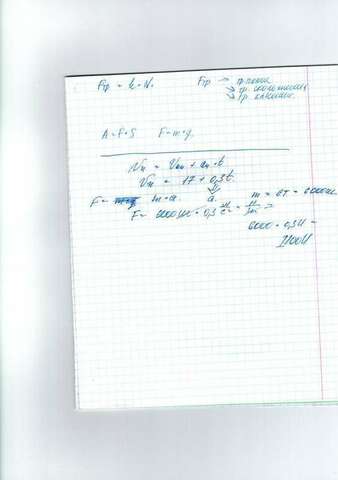 Fтр = k · N. Fтр → тр. покоя
→ тр. скольжения
→ тр. качения.
A = F · S F = m · g.
Vx = V₀x + ax · t
Vx = 17 + 0,3t.
F = m · a. a. m = 6T = 6000кг
F = 6000кг · 0,3 м/с² =
6000 · 0,3Н =